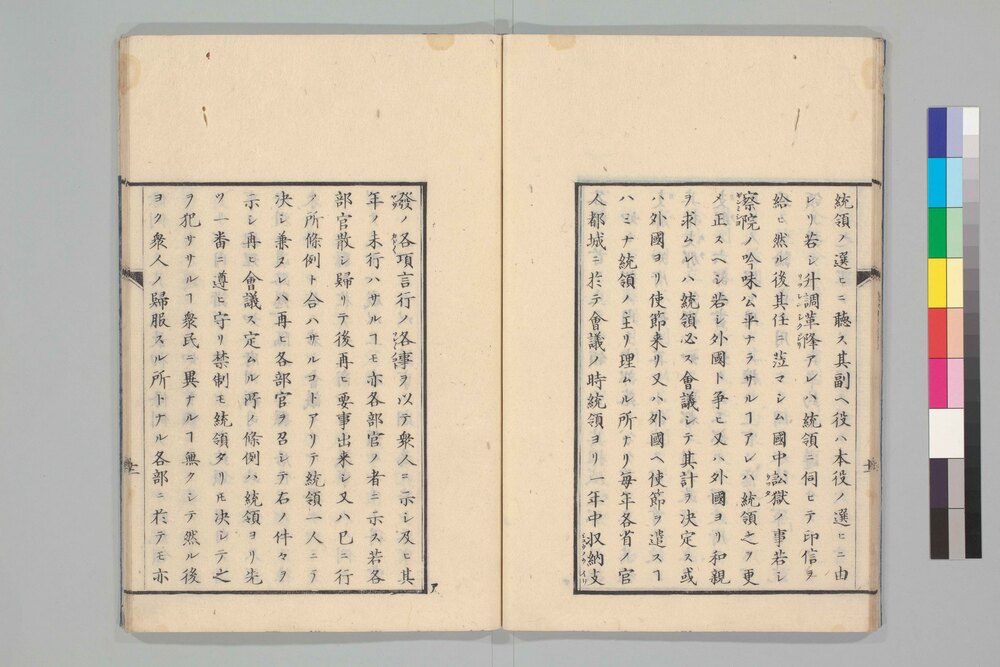 統領ノ選ヒニ聴ス其副ヘ役ハ本役ノ選ヒニ由
レリ若シ升調革降アレハ統領ニ伺ヒテ印信ヲ
給ヒ然ル後其任ニ蒞マシム國中訟獄ノ事若シ
察院ノ吟味公平ナラサルヿアレハ統領之ヲ更
メ正スヘシ若シ外國ト争ヒ又ハ外國ヨリ和親
ヲ求ムレハ統領必ス會議シテ其計ヲ決定ス或
ハ外國ヨリ使節来リ又ハ外國ヘ使節ヲ遣スヿ
ハミナ統領ノ主リ理ムル所ナリ毎年各省ノ官
人都城ニ於テ會議ノ時統領ヨリ一年中収納支
發ノ各項言行ノ各事ヲ以テ衆人ニ示シ及ヒ其
年ノ未行ハサルヿモ亦各部官ノ者ニ示ス若各
部官散シ歸リテ後再ヒ要事出来シ又ハ已ニ行
ノ所條例ト合ハサルコトアリテ統領一人ニテ
決シ兼タレハ再ヒ各部官ヲ召シテ右ノ件々ヲ
示シ再ヒ會議ス定ムル所ノ條例ハ統領ヨリ先
ツ一番ニ遵ヒ守リ禁制モ統領タリ𪜈決シテ之
ヲ犯ササルヿ衆民ニ異ナルヿ無クシテ然ル後
ヨク衆人ノ歸服スル所トナル各部ニ於テモ亦